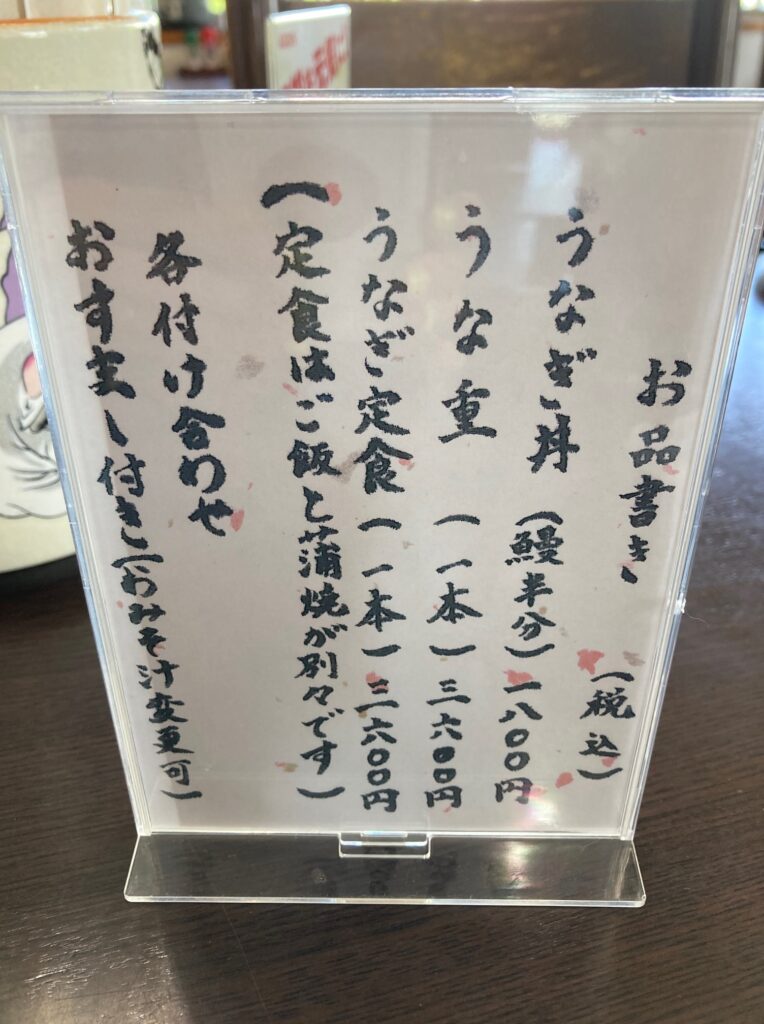 お品書き
(税込)
うなぎ丼 (鰻半分) 一八〇〇円
うな重 (一本) 三六〇〇円
うなぎ定食 (一本) 三六〇〇円
(定食はご飯と蒲焼が別々です)
各付け合わせ
おすまし付き(おみそ汁変更可)